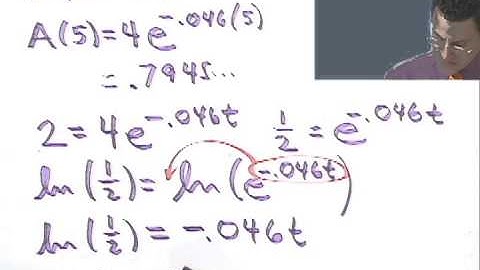 A(5)=4e^-.046(5)
=.7945...
2=4e^-.046t   1/2=e^-.046t
ln(1/2)=ln(e^-.046t)
ln(1/2)=-.046t